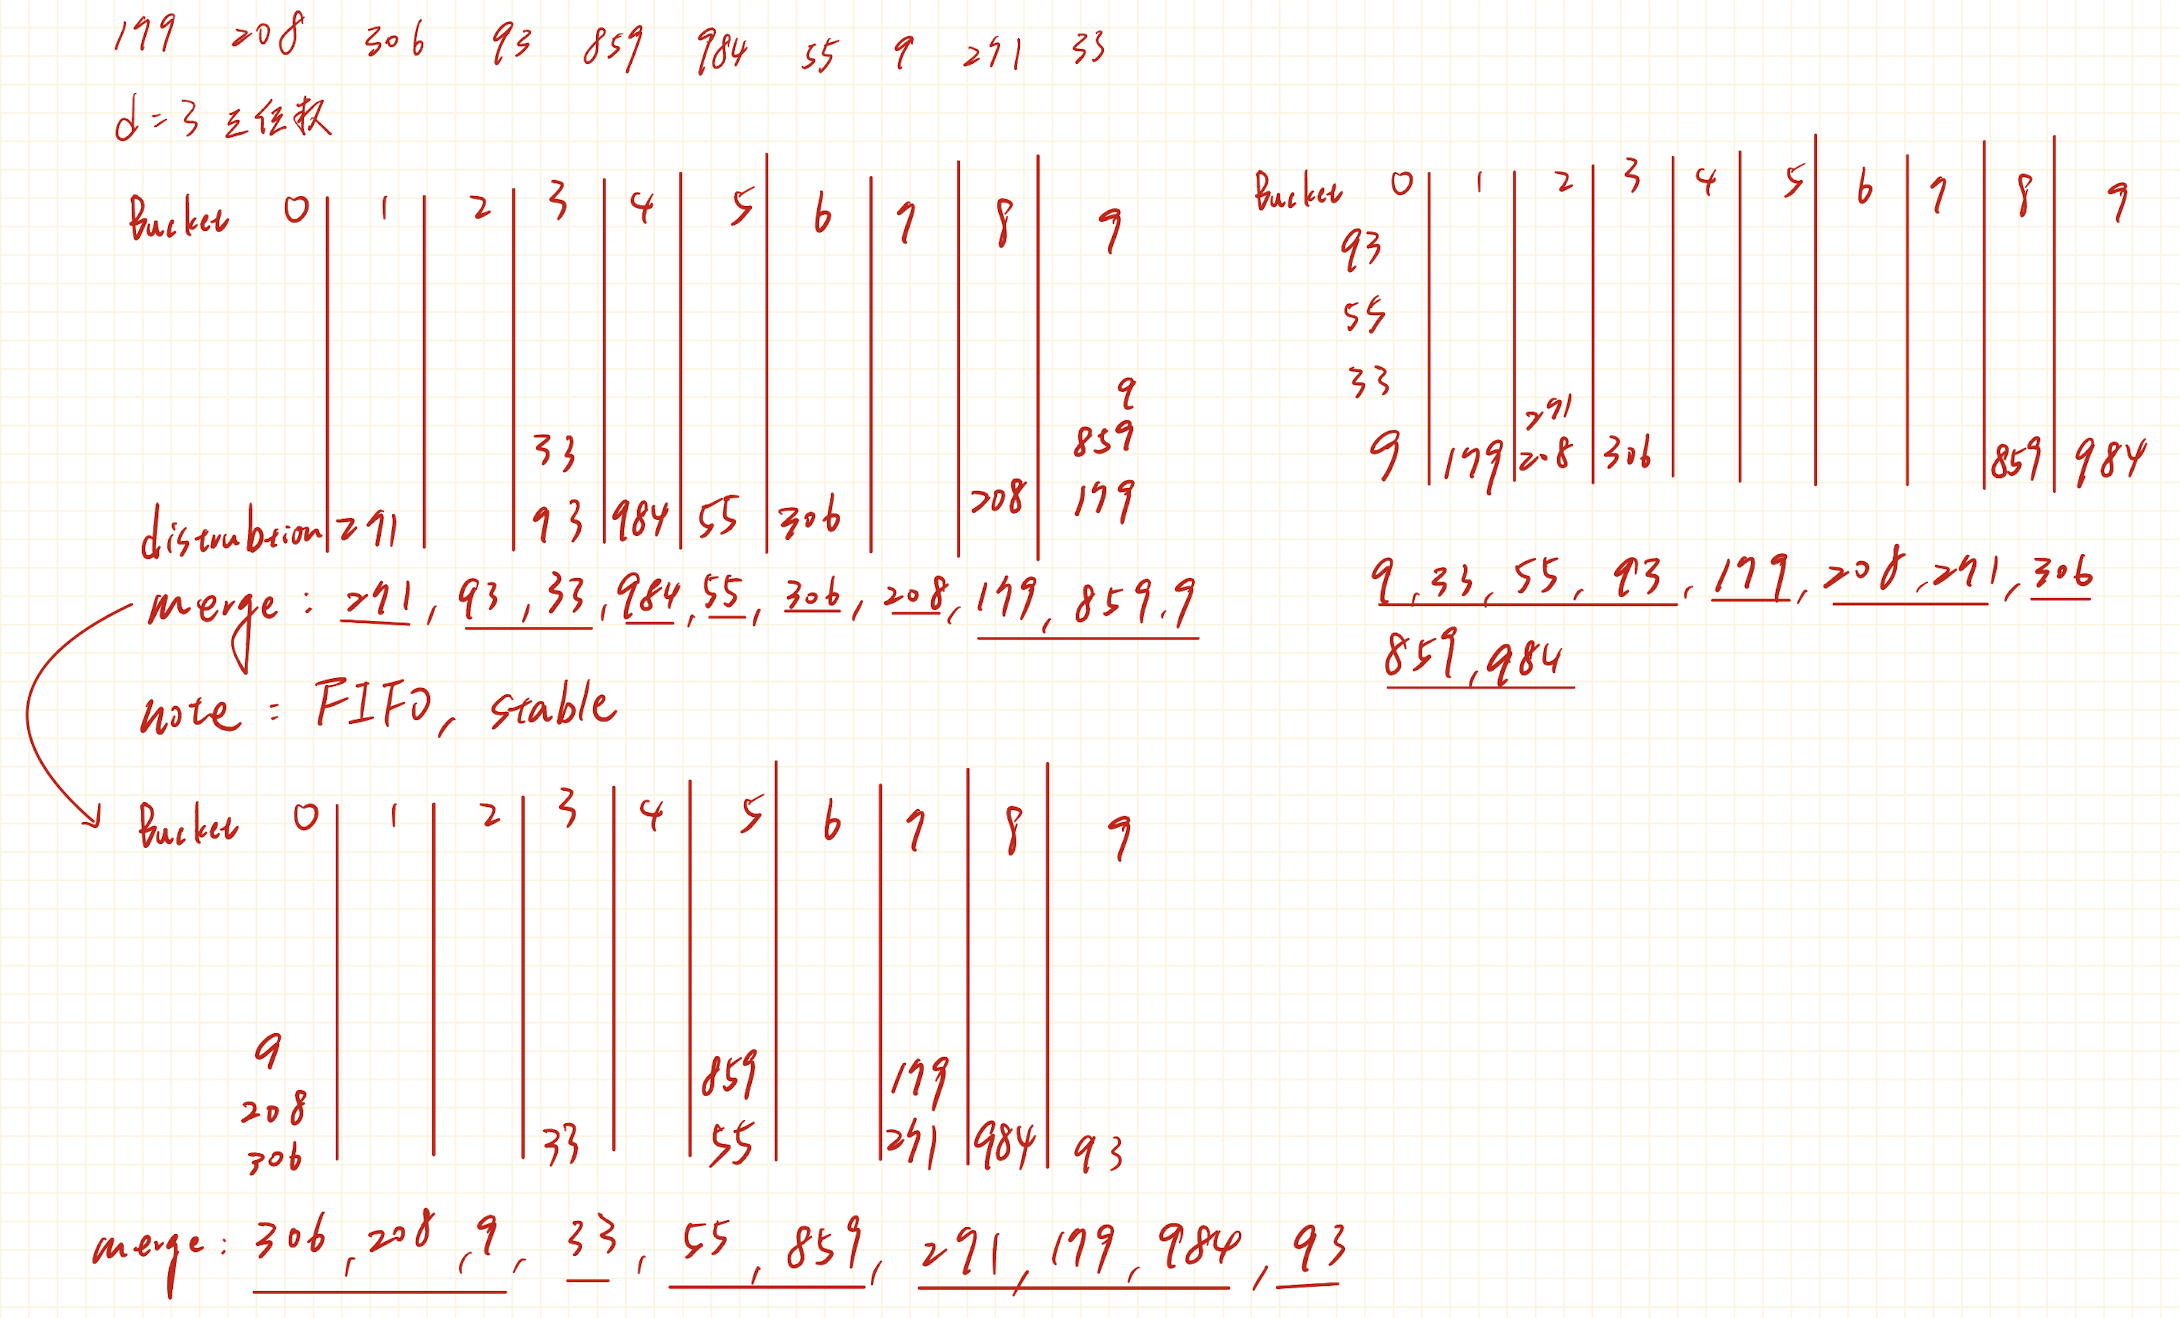 179 208 306 93 859 984 55 9 271 33
d=3 三位数
Bucket 0 1 2 3 4 5 6 7 8 9
9
33 859
distrubtion 271 93 984 55 306 208 179
merge: 271, 93, 33, 984, 55, 306, 208, 179, 859.9
note: FIFO, stable
Bucket 0 1 2 3 4 5 6 7 8 9
9 859 179
208
306 33 55 271 984 93
merge: 306, 208, 9, 33, 55, 859, 271, 179, 984, 93
Bucket 0 1 2 3 4 5 6 7 8 9
93
55
33
271
9 179 208 306 859 984
9, 33, 55, 93, 179, 208, 271, 306
859, 984